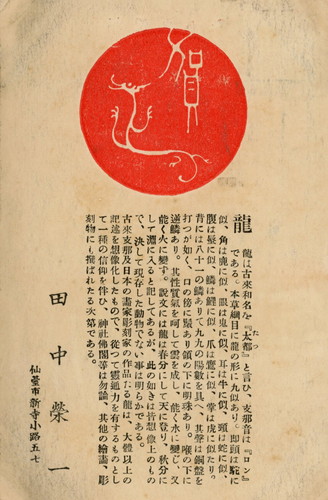 賀
正
龍
龍は古來和名を『太都』と言ひ、支那音は『ロン』
たつ
である。本草綱目に龍の形に九似あり。即頭は駝に
似、角は鹿に似、眼は鬼に似、耳は牛に似、頸は蛇に似、
腹は蜃に似、鱗は鯉に似、爪は鷹に似、掌は虎に似たり。
背には八十一の鱗ありて九々の陽數を具へ、其聲は銅盤を
打つが如く、口の傍に鬚あり頷の下に明珠あり。喉の下に
逆鱗あり。其性質氣を呵して雲を成し、能く水に變じ、又
能く火に變ず。説文には龍は春分にして天に登り、秋分に
して淵に入ると記してあるが、此の如きは皆想像上のもの
で、決して現存した動物でない事は明らかである。
古來支那及日本の畫家彫刻家の作品たる龍は、大體以上の
記述を想像化したもので、從つて靈通力を有するものとし
て一種の信仰を伴ひ、神社佛閣等は勿論、其他の繪畫、彫
刻物にも撰ばれたる次第である。
田中榮一
仙臺市新寺小路五七